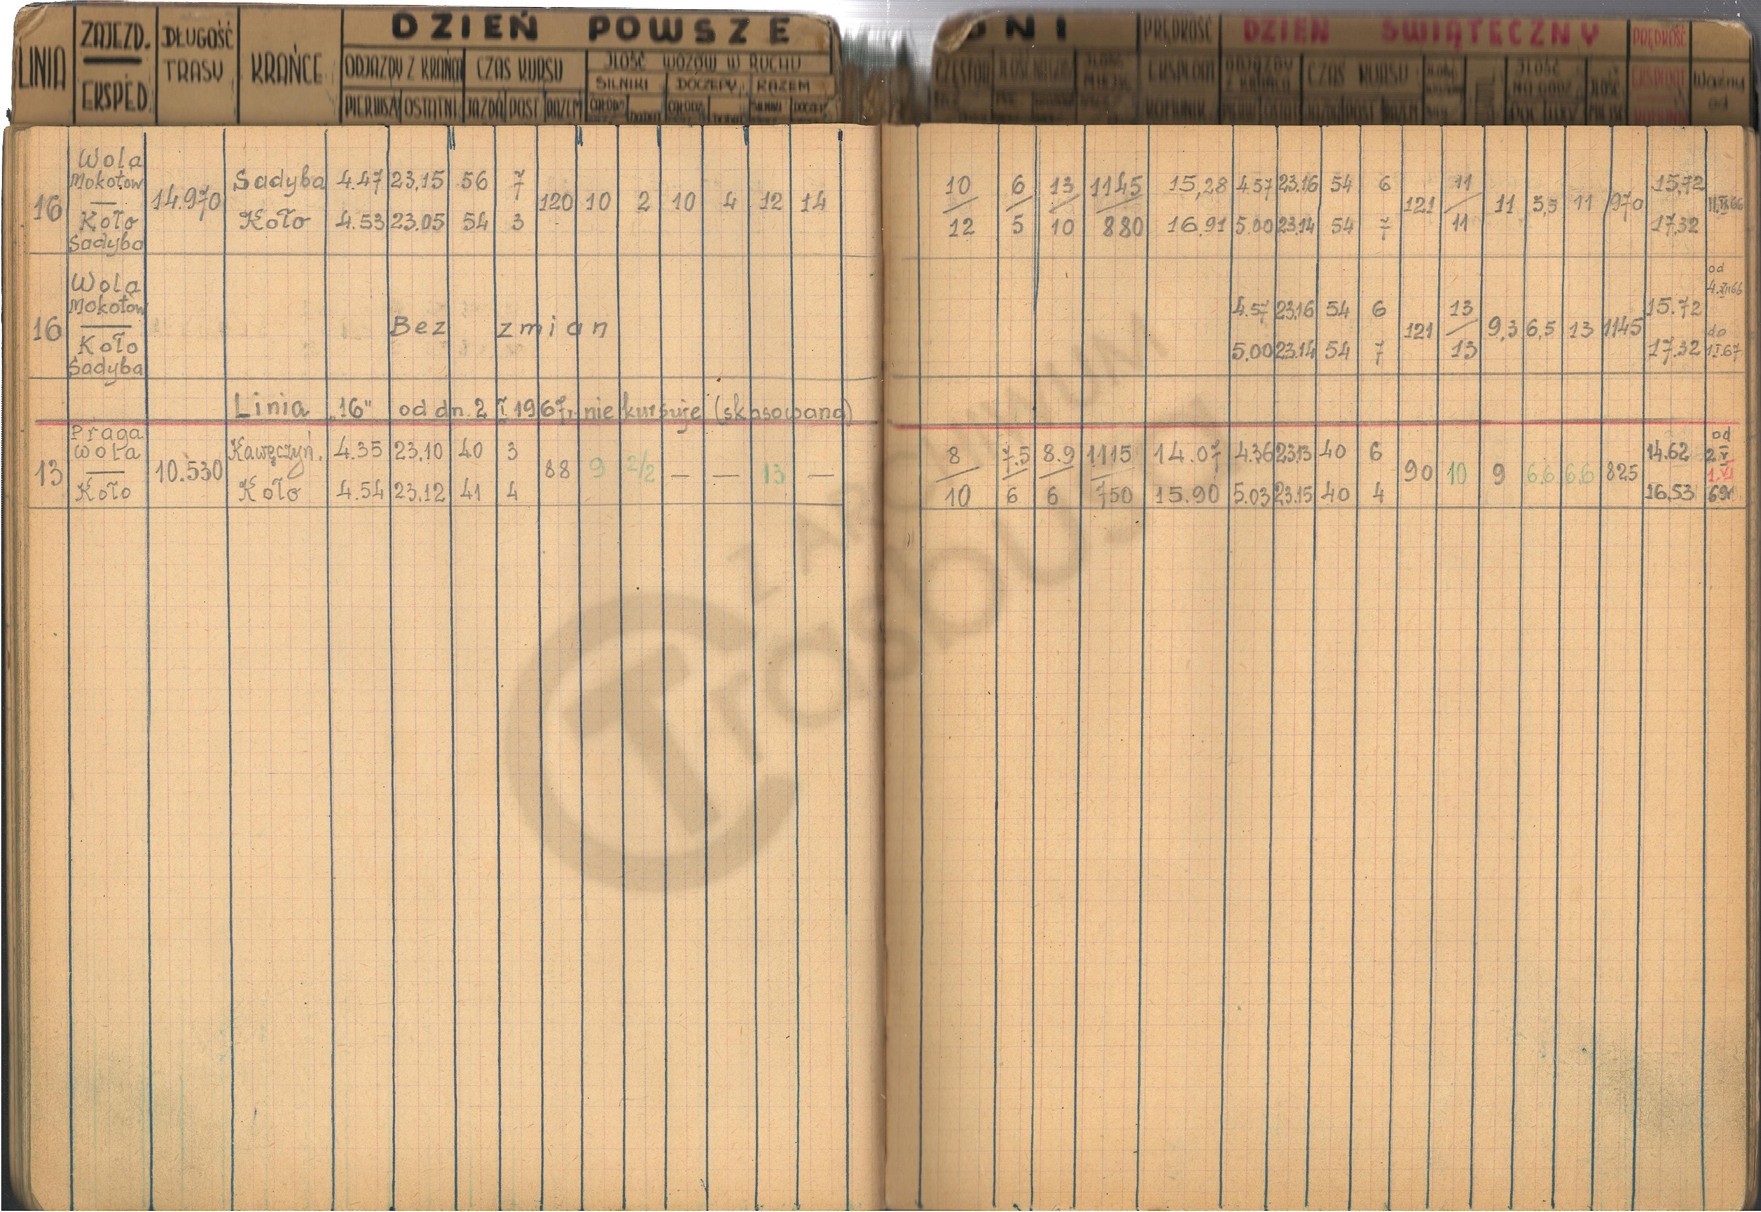 LINIA
ZAJEZD.
EKSPED.
DŁUGOŚĆ
TRASY
KRAŃCE
DZIEŃ POWSZE
ODJAZDY Z KRAŃCA
PIERWSZY OSTATNI
CZAS KURSU
JAZDA POST RAZEM
JLOŚĆ WOZÓW W RUCHU
SILNIKI DOCZEPY RAZEM
DNI
PRĘDKOŚĆ
DZIEŃ ŚWIĄTECZNY
CZAS KURSU
PRĘDKOŚĆ
Ważny
od
16
Wola
Mokotów
Koło
Sadyba
14.970
Sadyba 4.47 23.15 56 7
Koło 4.53 23.05 54 3
120 10 2 10 4 12 14
10 6 13 1145 15,28 4.57 23.16 54 6
12 5 10 880 16,91 5.00 23.14 54 7
121
11
11
11 5,5 11 970
15,72
17,32
16
Wola
Mokotów
Koło
Sadyba
Bez zmian
4.57 23.16 54 6
5.00 23.14 54 7
121
13
13
9,3 6,5 13 1145
15.72
17.32
od
4.XII66
do
1.I.67
Linia „16" od dn. 2 I 1967r. nie kursuje (skasowana)
13
Praga
Wola
Koło
10.530
Kawęczyń. 4.35 23.10 40 3
Koło 4.54 23.12 41 4
88 9 2/2 — — 13 —
8 7.5 8.9 1115 14.07 4.36 23.13 40 6
10 6 6 750 15.90 5.03 23.15 40 4
90 10 9 6.6 6.6 825
14.62
16.53
od
2.V
1.VI
69r
Z ARCHIWUM
TrasbUS